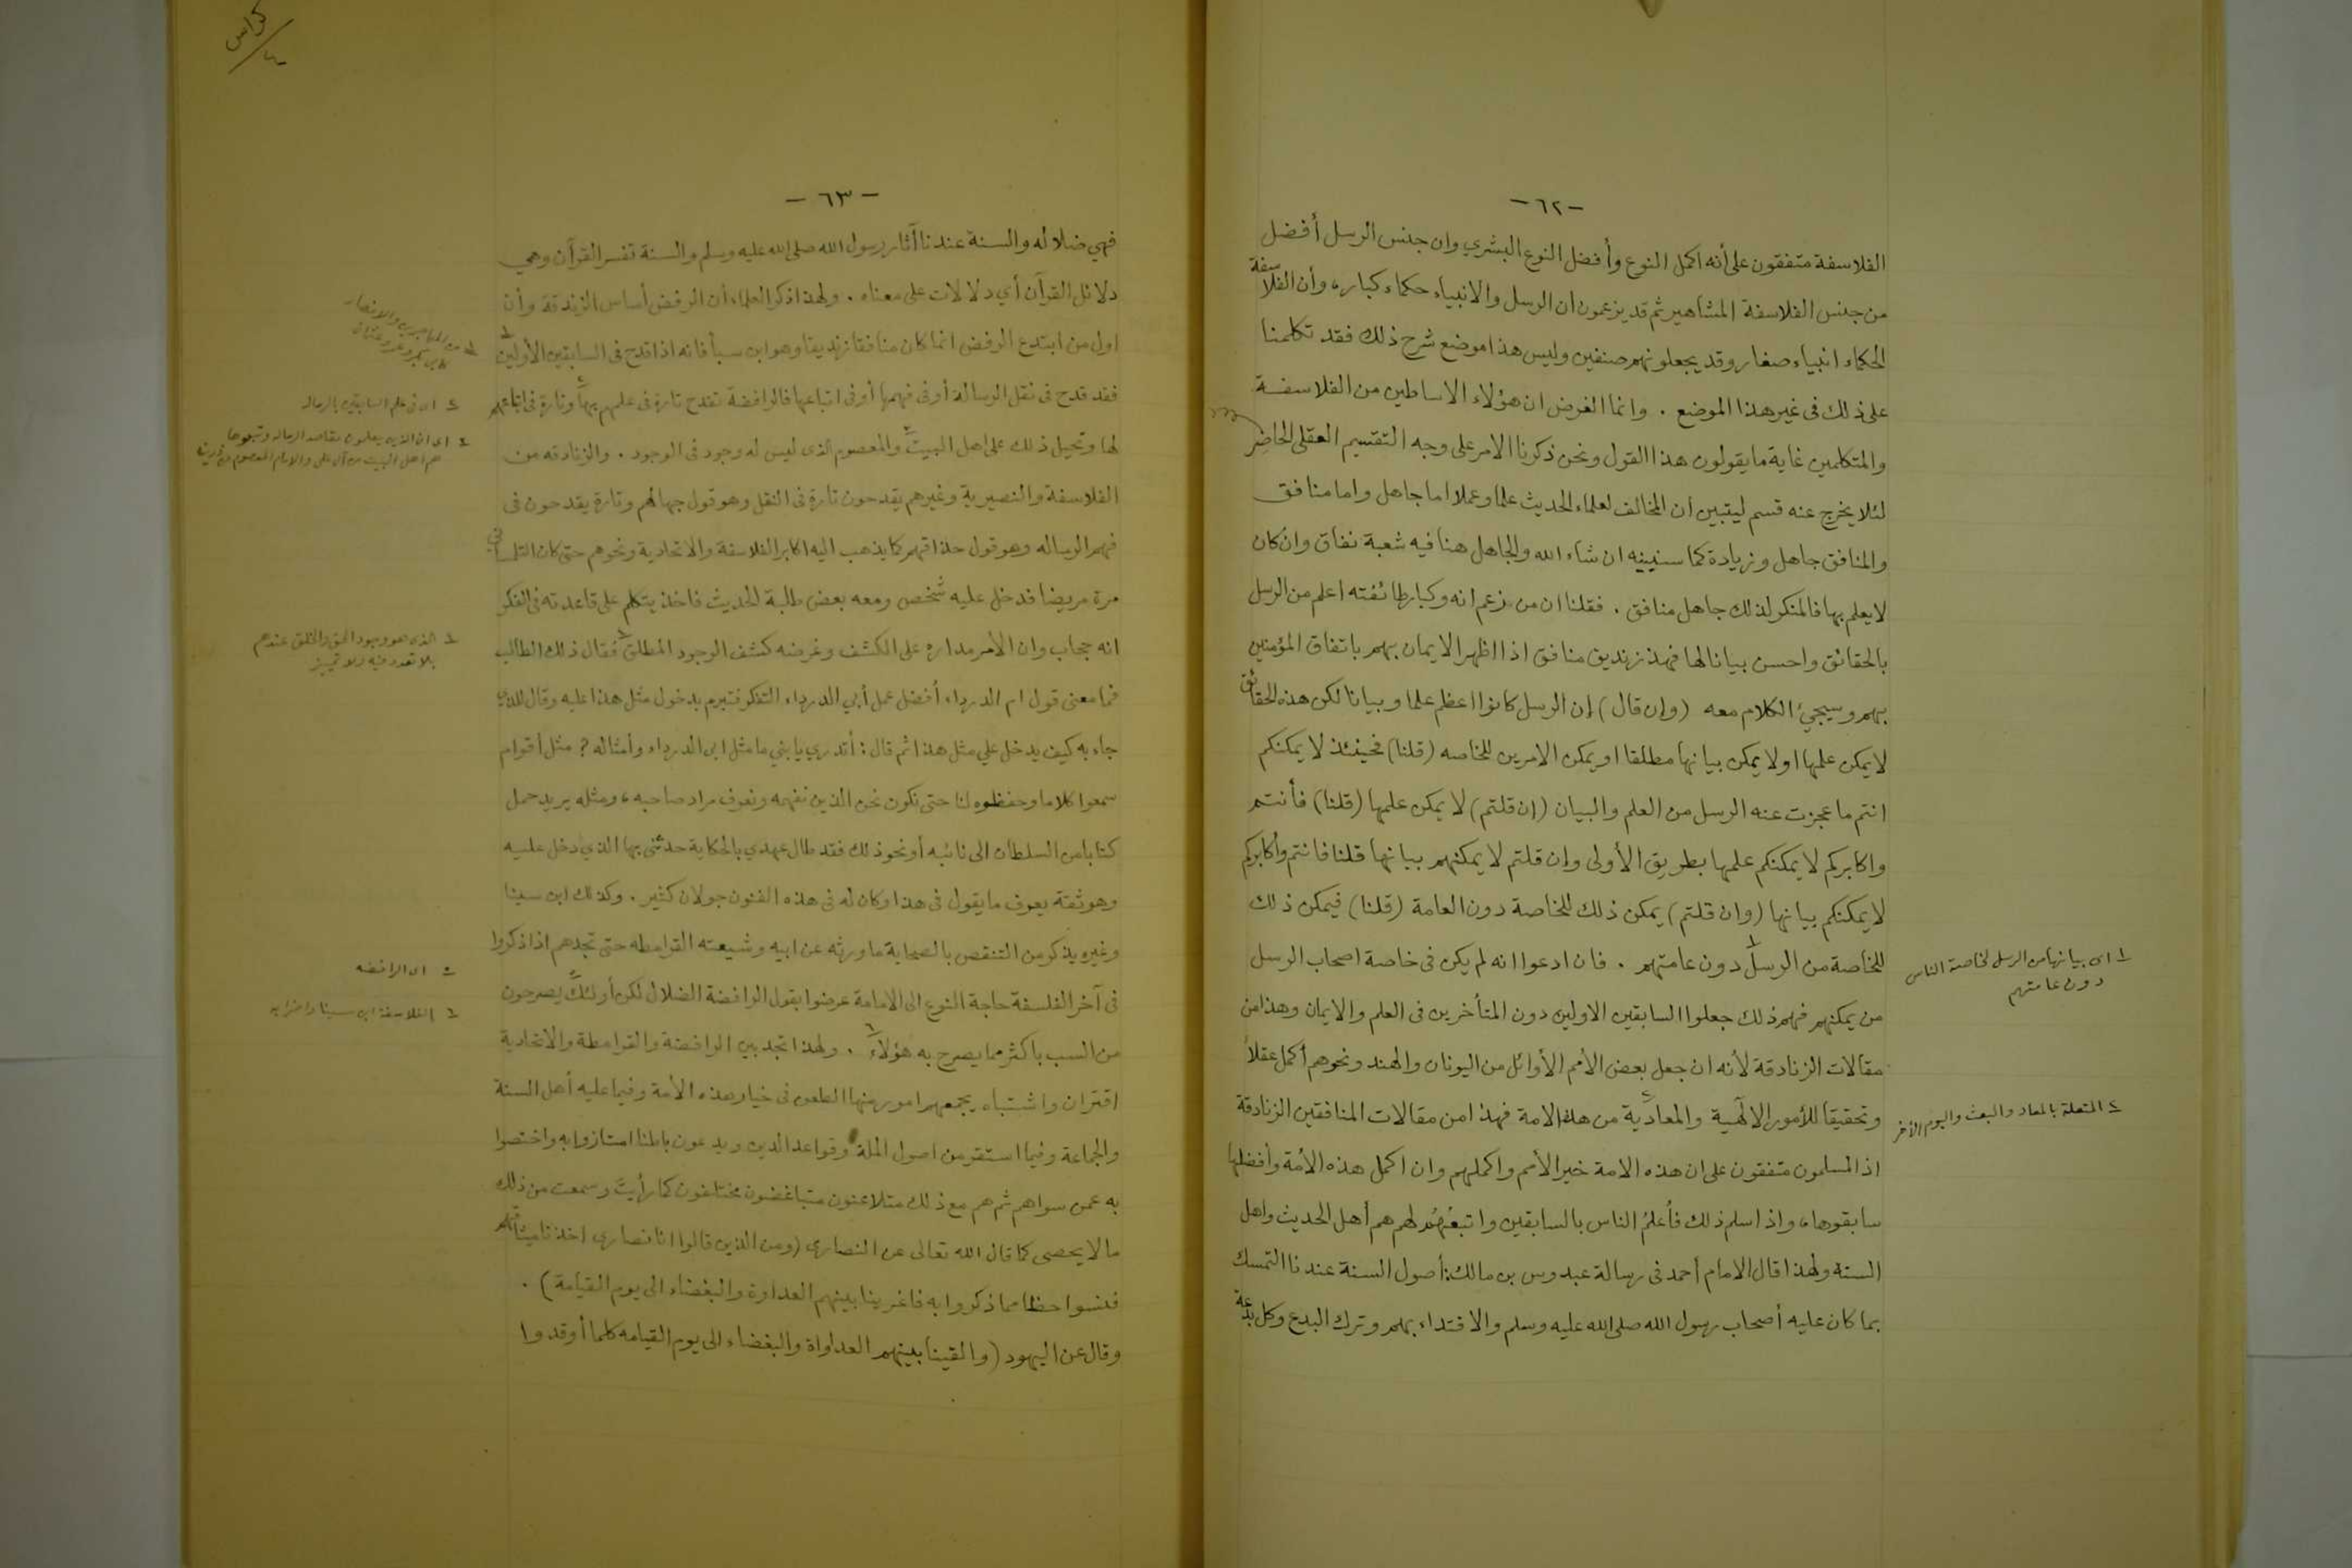 -٦٢-
الفلاسفة متفقون على أنه اكمل النوع وأفضل النوع البشري وان جنس الرسل أفضل
من جنس الفلاسفة المشاهير ثم قد يزعمون ان الرسل والانبياء حكماء كبار، وأن الفلاسفة
الحكماء انبياء صغار وقد يجعلونهم صنفين وليس هذا موضع شرح ذلك فقد تكلمنا
على ذلك فى غير هذا الموضع . وانما الغرض ان هؤلاء الاساطين من الفلاسفة
والمتكلمين غاية ما يقولون هذا القول ونحن ذكرنا الامر على وجه التقسيم العقلى الحاضر
لئلا يخرج عنه قسم ليتبين أن المخالف لعلماء الحديث علما وعملا اما جاهل واما منافق
والمنافق جاهل وزيادة كما سنبينه ان شاء الله والجاهل هنا فيه شعبة نفاق وان كان
لا يعلم بها فالمنكر لذلك جاهل منافق . فقلنا ان من زعم انه وكبار طائفته اعلم من الرسل
بالحقائق واحسن بيانا لها فهذ زنديق منافق اذا اظهر الايمان بهم باتفاق المؤمنين
بهم وسيجئ الكلام معه (وإن قال) إن الرسل كانوا اعظم علما وبيانا لكن هذه الحقائق
لا يمكن علمها او لا يمكن بيانها مطلقا او يمكن الامرين للخاصه (قلنا) فحينئذ لا يمكنكم
انتم ما عجزت عنه الرسل من العلم والبيان (ان قلتم) لا يمكن علمها (قلنا) فأنتم
واكابركم لا يمكنكم علمها بطريق الأولى وإن قلتم لا يمكنهم بيانها قلنا فانتم وأكابركم
لا يمكنكم بيانها (وان قلتم) يمكن ذلك للخاصة دون العامة (قلنا) فيمكن ذلك
للخاصة من الرسل١ دون عامتهم . فان ادعوا انه لم يكن فى خاصة اصحاب الرسل
من يمكنهم فهم ذلك جعلوا السابقين الاولين دون المتأخرين فى العلم والايمان وهذا من
مقالات الزنادقة لأنه ان جعل بعض الأمم الأوائل من اليونان والهند ونحوهم أكمل عقلاً
وتحقيقا للأمور الالهية والمعادية٢ من هذه الامة فهذا من مقالات المنافقين الزنادقة
اذ المسلمون متفقون على ان هذه الامة خير الأمم واكملهم وان اكمل هذه الأمة وأفضلها
سابقوها، واذا سلم ذلك فأعلمُ الناس بالسابقين واتبعُهُم لهم هم أهل الحديث واهل
السنة ولهذا قال الامام أحمد فى رسالة عبدوس بن مالك: أصول السنة عندنا التمسك
بما كان عليه أصحاب رسول الله صلى الله عليه وسلم والاقتداء بهم وترك البدع وكل بدعة
١ اى بيانها من الرسل لخاصة الناس
دون عامتهم
٢ المتعلقة بالمعاد والبعث واليوم الآخر
كراس
٤
-٦٣-
فهي ضلاله والسنة عندنا آثار رسول الله صلى الله عليه وسلم والسنة تفسر القرآن وهي
دلائل القرآن أي دلالات على معناه . ولهذا ذكر العلماء أن الرفض أساس الزندقة وأن
اول من ابتدع الرفض انما كان منافقا زنديقا وهو ابن سبأ فانه اذا قدح فى السابقين الأولين١
فقد قدح فى نقل الرسالة أو فى فهمها أو فى اتباعها فالرافضة تقدح تارة فى علمهم بها٢ وتارة فى اتباعهم
لها وتحيل ذلك على اهل البيت٣ والمعصوم الذى ليس له وجود فى الوجود . والزنادقه من
الفلاسفة والنصيرية وغيرهم يقدحون تارة فى النقل وهو قول جهالهم وتارة يقدحون فى
فهم الرساله وهو قول حذاقهم كما يذهب اليه اكابر الفلاسفة والاتحادية ونحوهم حتى كان التلمسانى
مرة مريضا فدخل عليه شخص ومعه بعض طلبة الحديث فاخذ يتكلم على قاعدته فى الفكر
انه حجاب وان الأمر مداره على الكشف وغرضه كشف الوجود المطلق٤ فقال ذلك الطالب
فما معنى قول ام الدرداء أفضل عمل أبي الدرداء التفكر فتبرم بدخول مثل هذا عليه وقال للذي
جاء به كيف يدخل علي مثل هذا ثم قال : أتدري يا بني ما مثل ابى الدرداء وأمثاله ? مثل أقوام
سمعوا كلاما وحفظوه لنا حتى نكون نحن الذين نفهمه ونعرف مراد صاحبه، ومثله بريد حمل
كتابا من السلطان الى نائبه أو نحو ذلك فقد طال عهدي بالحكاية حدثنى بها الذي دخل عليه
وهو ثقة يعرف ما يقول فى هذا وكان له فى هذه الفنون جولان كثير . وكذلك ابن سينا
وغيره يذكر من التنقص بالصحابة ما ورثه عن ابيه وشيعته القرامطه حتى تجدهم اذا ذكروا
فى آخر الفلسفة حاجة النوع الى الامامة عرضوا بقول الرافضة الضلال لكن أولئك٥ يصرحون
من السب باكثر مما يصرح به هؤلاء٦ . ولهذا تجد بين الرافضة والقرامطة والاتحادية
اقتران واشتباه يجمعهم امور منها الطعن فى خيار هذه الأمة وفيما عليه أهل السنة
والجماعة وفيما استقر من اصول الملة وقواعد الدين ويدعون باطنا امتازوا به واختصوا
به عمن سواهم ثم هم مع ذلك متلاعنون متباغضون مختلفون كما رأيت وسمعت من ذلك
ما لا يحصى كما قال الله تعالى عن النصارى (ومن الذين قالوا انا نصارى اخذنا ميثاقهم
فنسوا حظا مما ذكروا به فاغرينا بينهم العداوة والبغضاء الى يوم القيامة) .
وقال عن اليهود (والقينا بينهم العداواة والبغضاء الى يوم القيامه كلما أوقدوا
١ من المهاجرين والانصار
كابى بكر وعمر وعثمان
٢ اى فى علم السابقين بالرساله
٣ اى ان الذين يعلمون مقاصد الرساله وتبعوها
هم اهل البيت من آل على والامام المعصوم من
٤ الذى هو وجود الحق والخلق عندهم
بلا تعدد فيه ولا تمييز
٥ اى الرافضه
٦ الفلاسفة ابن سينا واضرابه